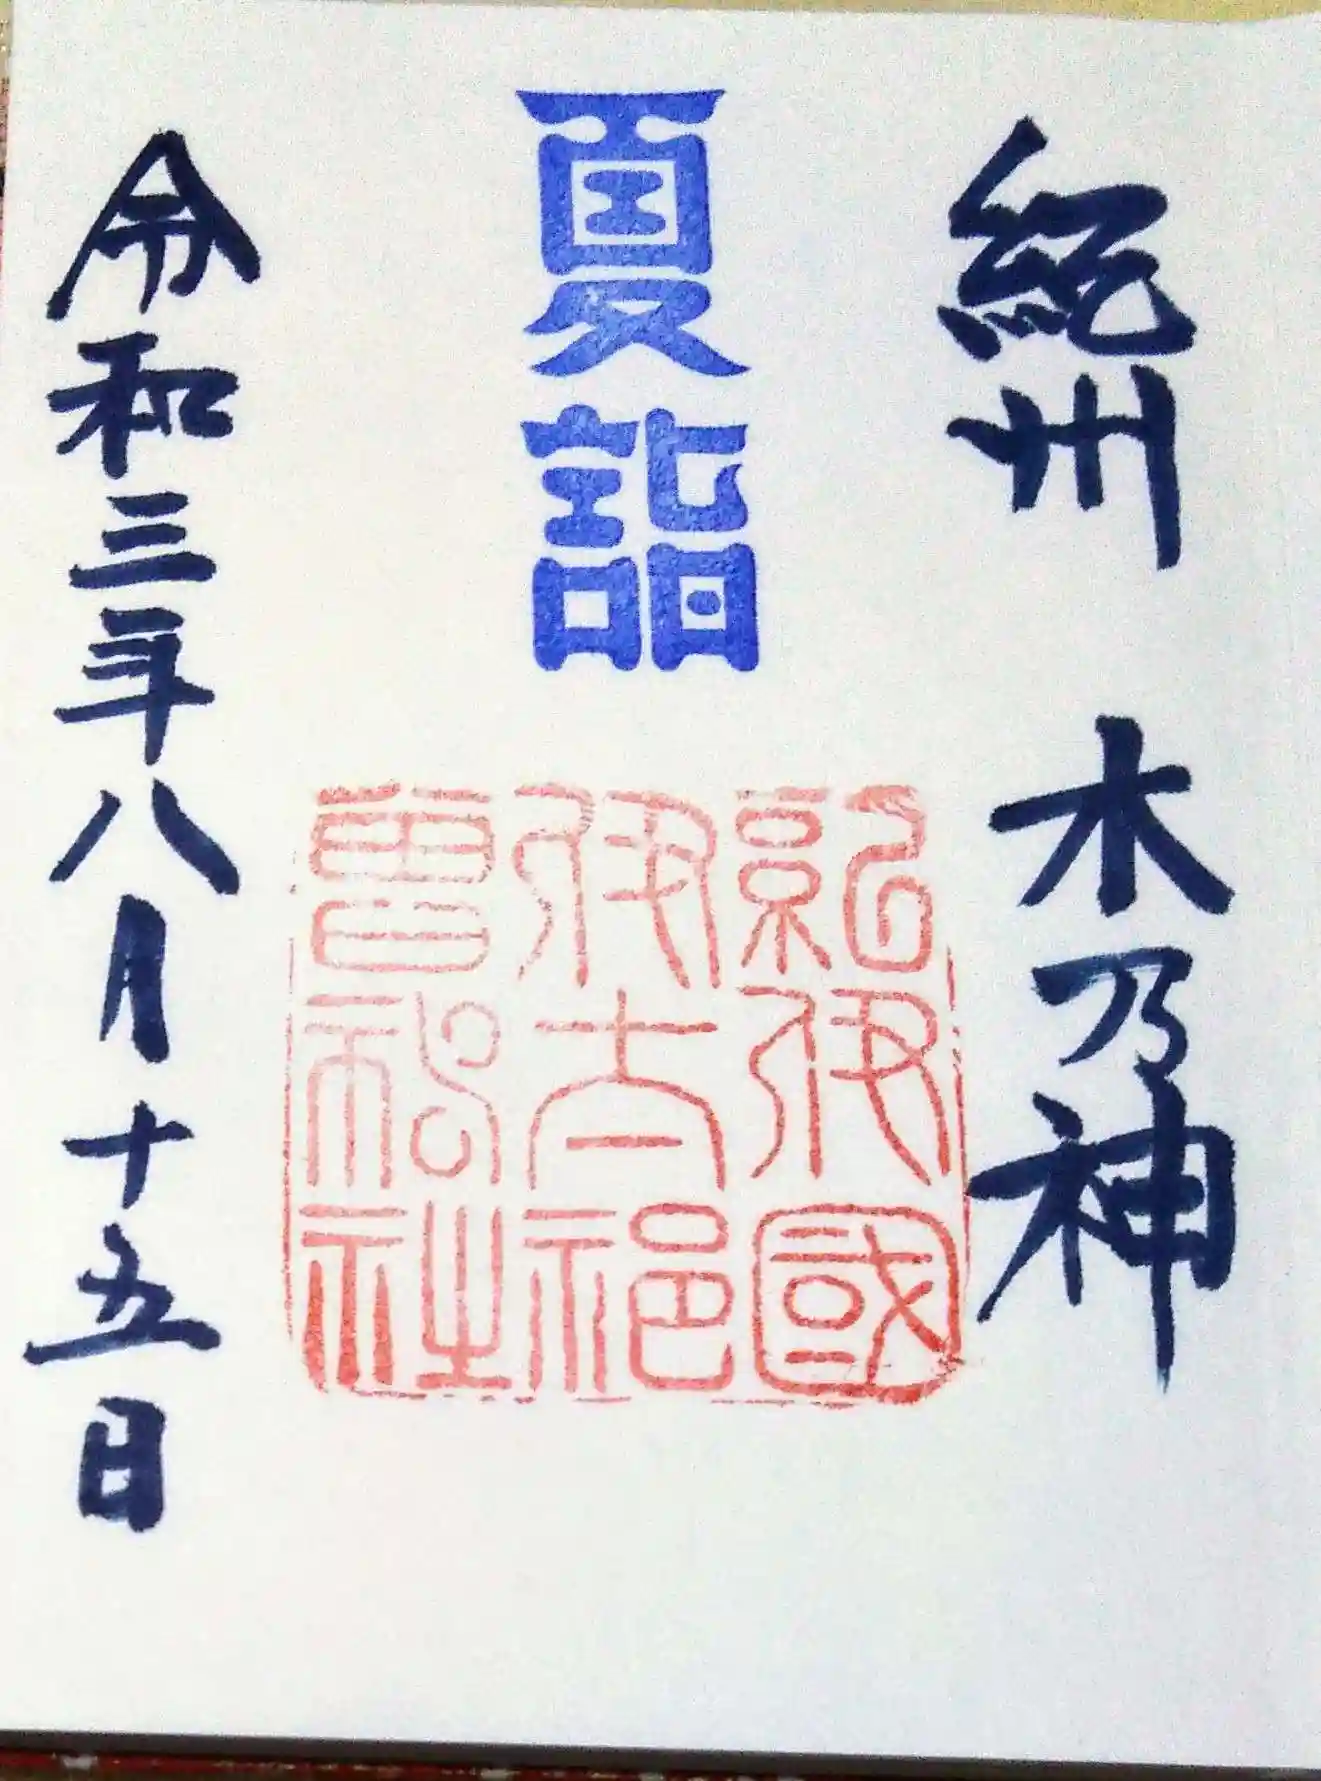 紀州 木乃神
夏詣
紀伊國
伊太祁
曽神社
令和三年八月十五日